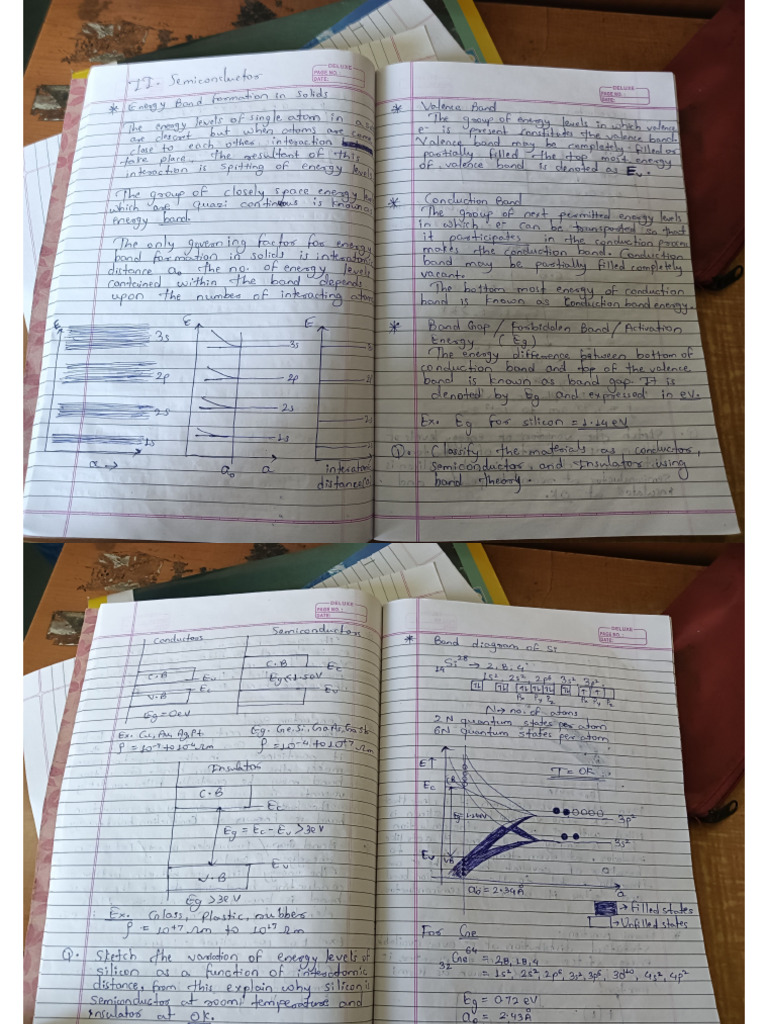 DELUXE
PAGE NO.:
DATE:
II. Semiconductor
* Energy Band formation in solids
The energy levels of single atom in a
are descret but when atoms are come
close to each other interaction
take place, the resultant of this
interaction is spitting of energy levels
The group of closely space energy
which are quasi continous is known as
energy band.
The only governing factor for energy
band formation in solids is interatomic
distance a₀ the no. of energy levels
contained within the band depends
upon the number of interacting atom
E
3s
2p
2s
1s
x→
E
3s
2p
2s
1s
a₀
a
E
interatomic
distance(a
DELUXE
PAGE NO.:
DATE:
* Valence Band
The group of energy levels in which valence
e⁻ is present constitute the valence band.
Valence band may be completely filled or
partially filled the top most energy
of valence band is denoted as Ev.
* Conduction Band
The group of next permitted energy levels
in which e⁻ can be transported so that
it participates in the conduction process
makes the conduction band. Conduction
band may be partially filled completely
vacant.
The bottom most energy of conduction
band is known as conduction band energy.
* Band Gap / Forbidden Band / Activation
Energy (Eg)
The energy difference between bottom of
conduction band and top of the valence
band is known as band gap. It is
denoted by Eg and expressed in ev.
Ex. Eg for silicon = 1.14 eV
Q. Classify the materials as conductor,
semiconductor, and Insulator using
band theory.
DELUXE
PAGE NO.:
DATE:
Conductors
Semiconductors
C.B
Ev
Ec
V.B
Eg = 0eV
C.B
Ec
Ev
Ex. Cu, Au, Ag, Pt
Eg. Ge, Si, GaAs,
Insulator
C.B
Ec
Eg = Ec - Ev > 3eV
Ev
V.B
Eg > 3eV
Ex. Galass, plastic, rubber
ρ = 10⁺⁷ m to 10⁺¹⁷ Ωm
Q. Sketch the variation of energy levels of
silicon as a function of interatomic
distance, from this explain why silicon is
semiconductor at room temperature and
insulator at 0K.
DELUXE
PAGE NO.:
DATE:
* Band diagram of Si
₁₄Si²⁸ → 2, 8, 4
1s² 2s², 2p⁶, 3s², 3p²
N → no. of atoms
2N quantum states per atom
6N quantum states per atom
E↑
T = 0K
Ec
CB
3p²
3s²
Ev
VB
a₀ = 2.34Å
a
→ Filled states
→ Unfilled states
For Ge
₃₂Ge⁶⁴ = 2, 8, 18, 4
= 1s², 2s², 2p⁶, 3s², 3p⁶, 3d¹⁰, 4s², 4p²
Eg = 0.72 eV
a₀ = 2.43Å